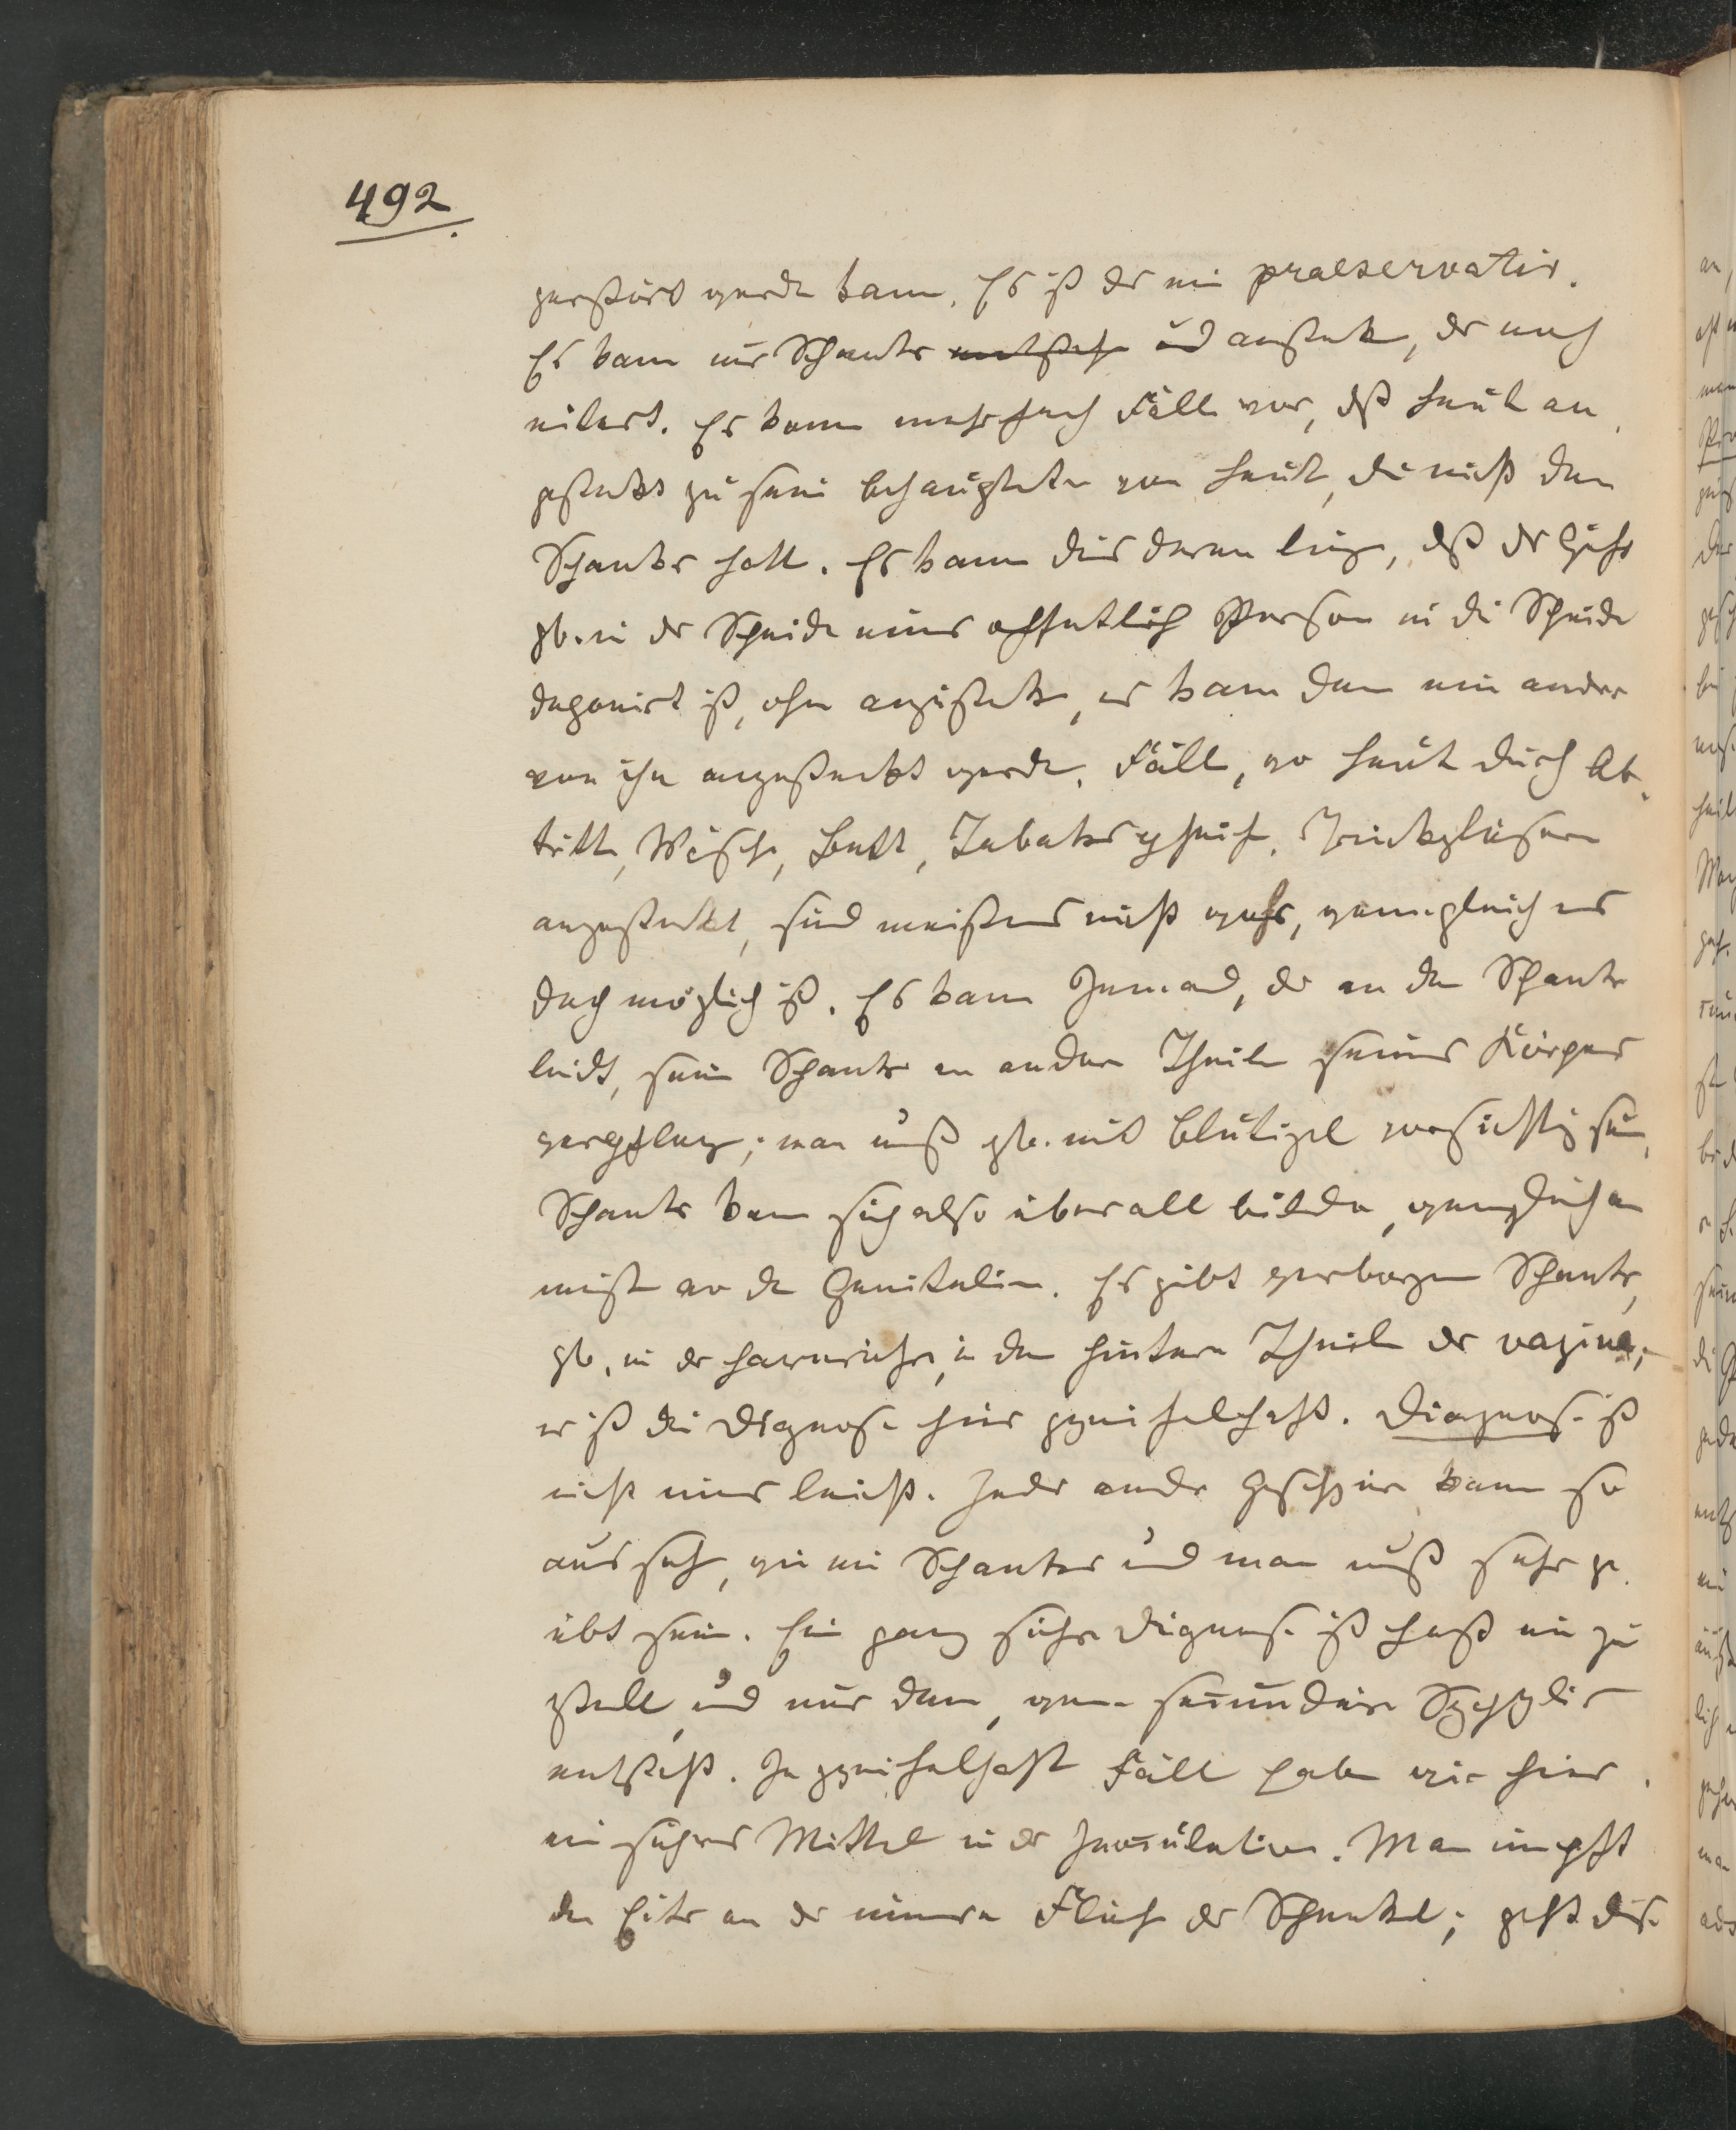 492
zerstört werden kann. Es ist der ein praeservativ.
Es kann nur Schanker entsteh und anstecken, der noch
eitert. Es kann mehrfach Fälle vor, daß Leute an
gesteckt zu sein behaupteten von Leute, die nicht den
Schanker hatt. Es kann dies daran liegen, daß der
zb. in der Scheide einer öffentlich Person in die Scheide
deponirt ist, ohne anzustecken, es kann dann ein ander
von ihr angesteckt werden. Fälle, wo Leute durch Ab
tritte, Wäsche, Bett, Tabakspfeife, Trinkgläsern
angesteckt, sind meistens nicht wahr, wenngleich es
doch möglich ist. Es kann Jemand, der an den Schanker
leidet, sein Schanker an andere Theile seines Körpers
verpflanz; man muß zb. mit Blutigel vorsichtig sein,
Schanker kann sich also überall bilden, wenngleich am
meist an de Genitalien. Es gibt verborgen Schanker,
zb. in der Harnröhre, in den hintern Theile der vagina,
es ist die Diagnose hier zweifelhaft. Diagnose ist
nicht immer leicht. Jedes andere Geschwür kann so
aussehe, wie ein Schanker und man muß sehr ge
übt sein. Ein ganz sicher Diagnose ist fast nie zu
stell, und nur dann, wenn secundäre Syphylis
entsteht. In zweifelhaft Fälle haben wir hier
ein sicheres Mittel in der Inoculation. Man impft
den Eiter an der innern Fläche der Schenkel; geht dies